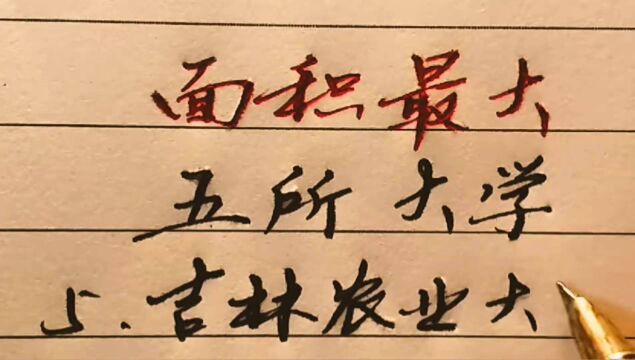 面积最大
五所大学
5.吉林农业大